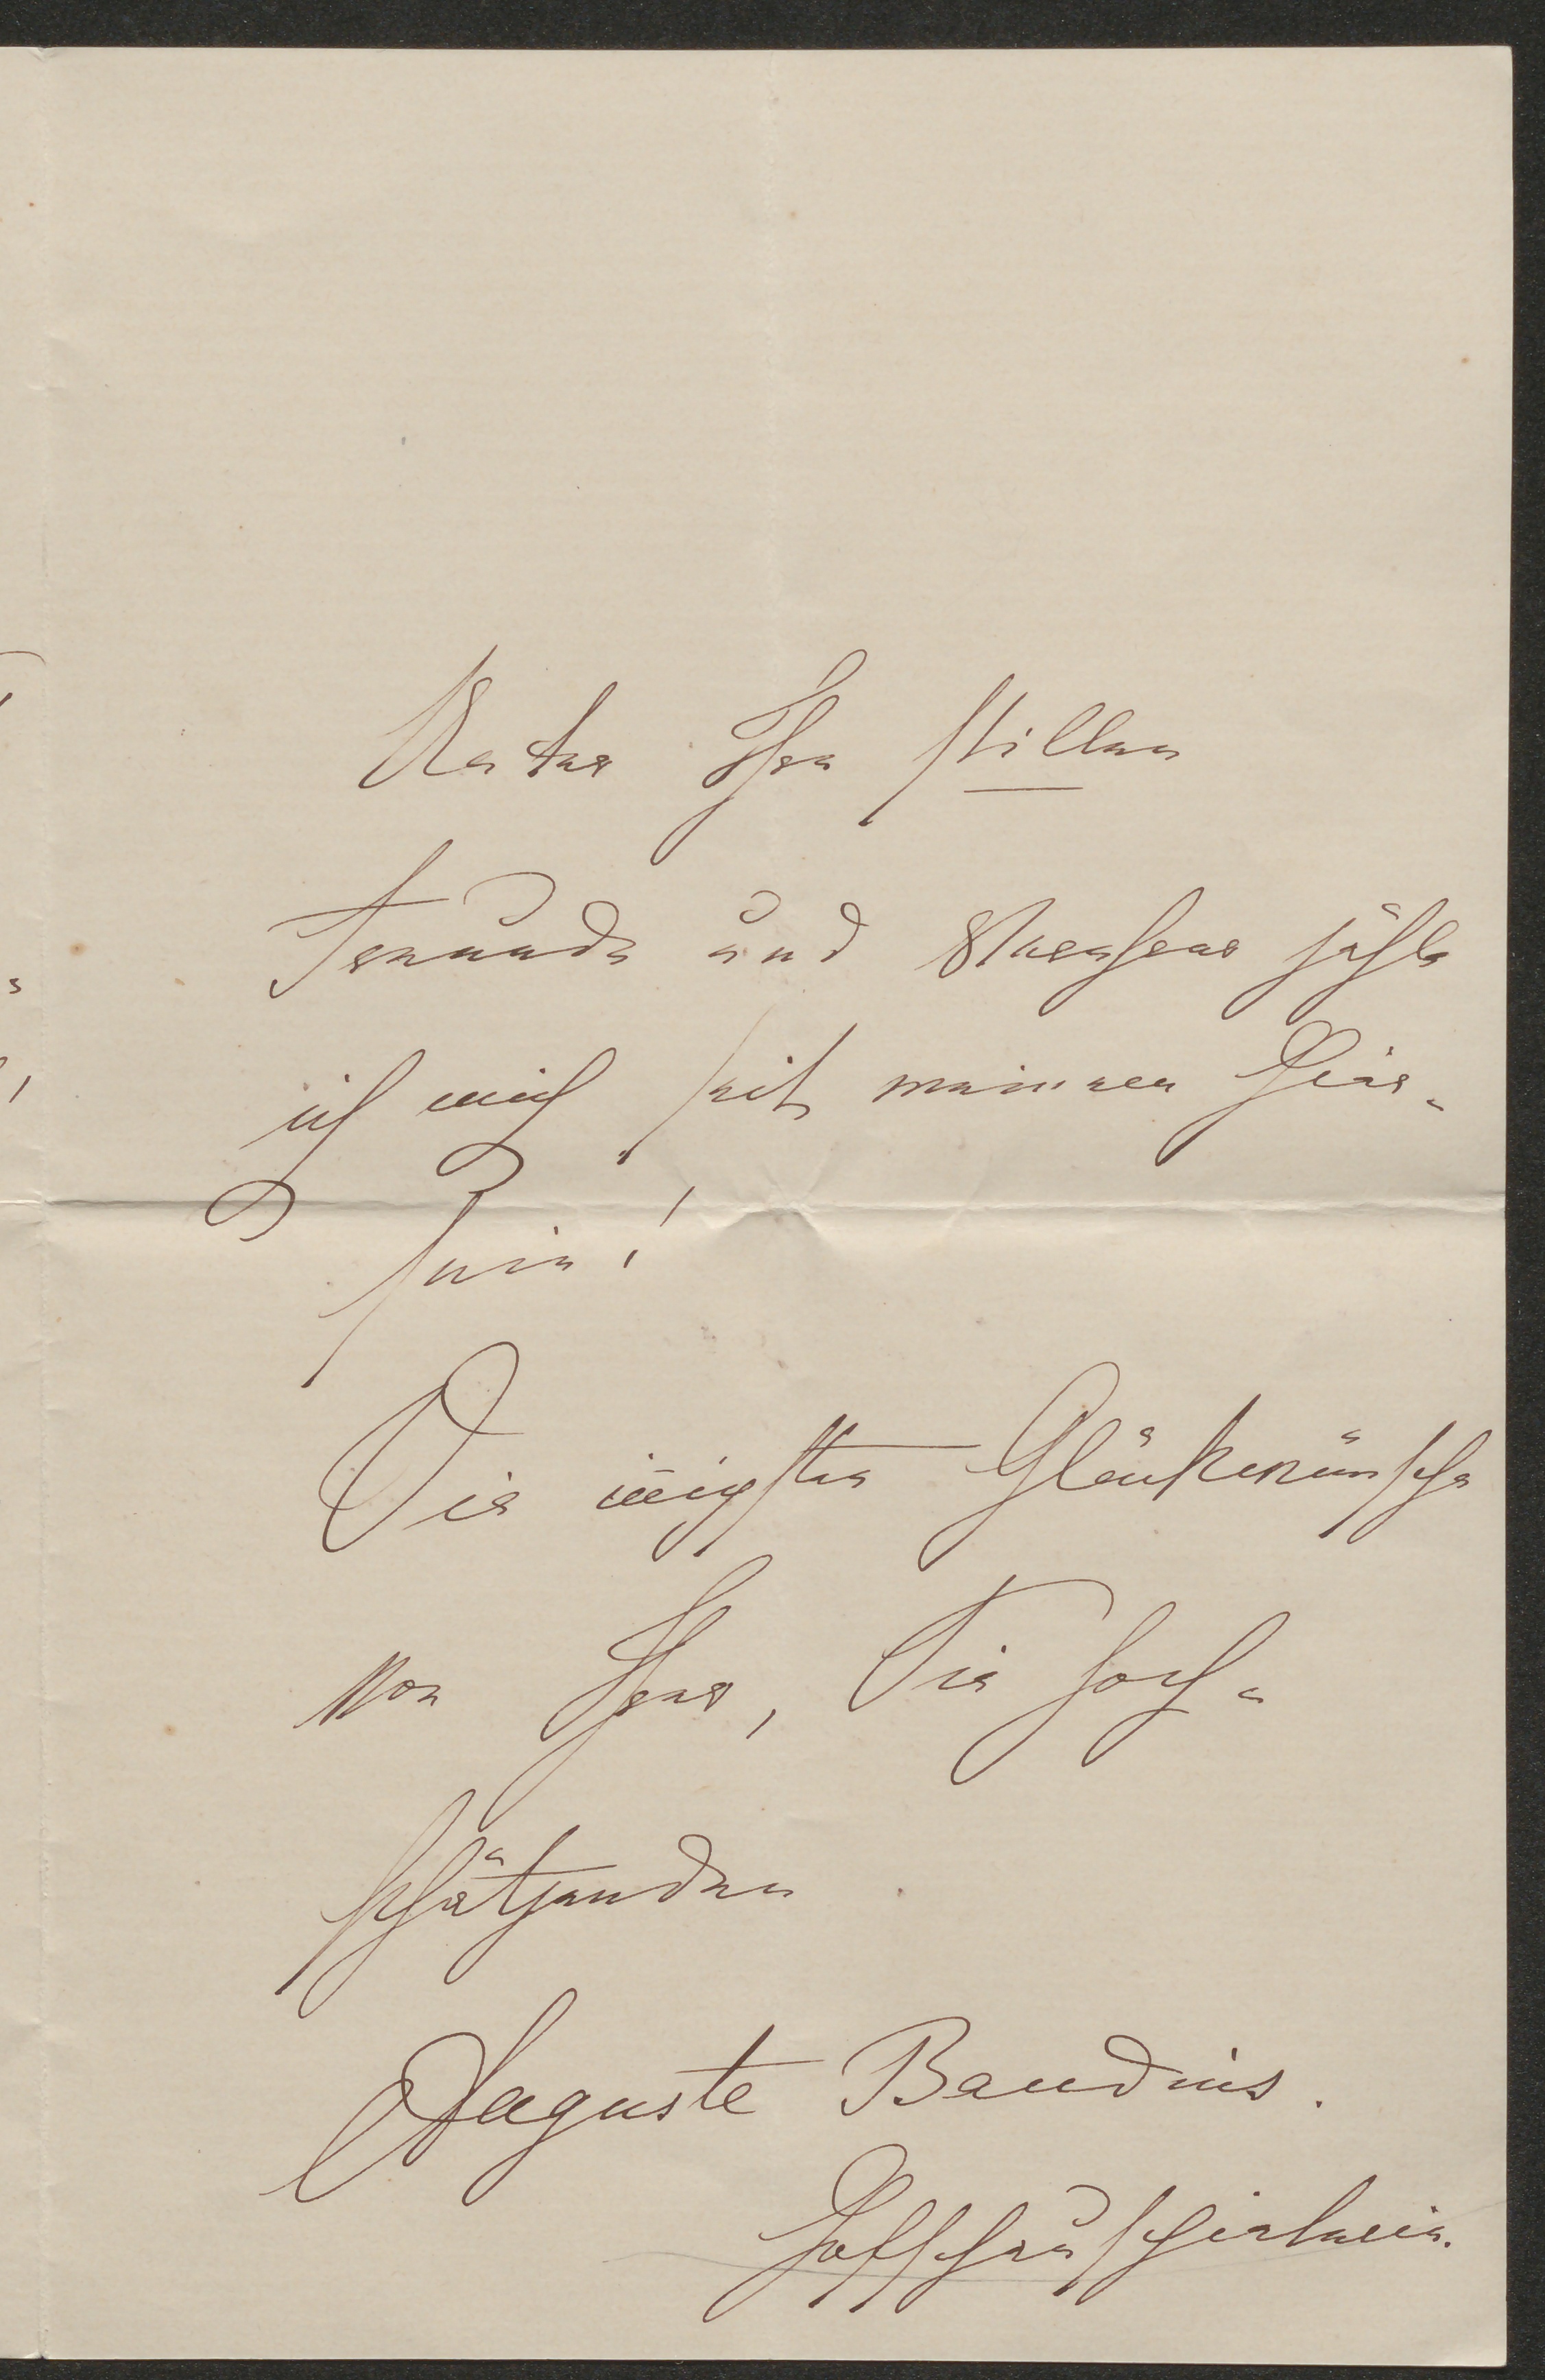 Unter Ihre stillen
Freunde und Verehrer zähle
ich mich seit meinem Hier-
sein!
Die iñigsten Glückwünsche
von Ihrer, Sie hoch-
schätzenden
Auguste Baudius.
Hofschauspielerin.